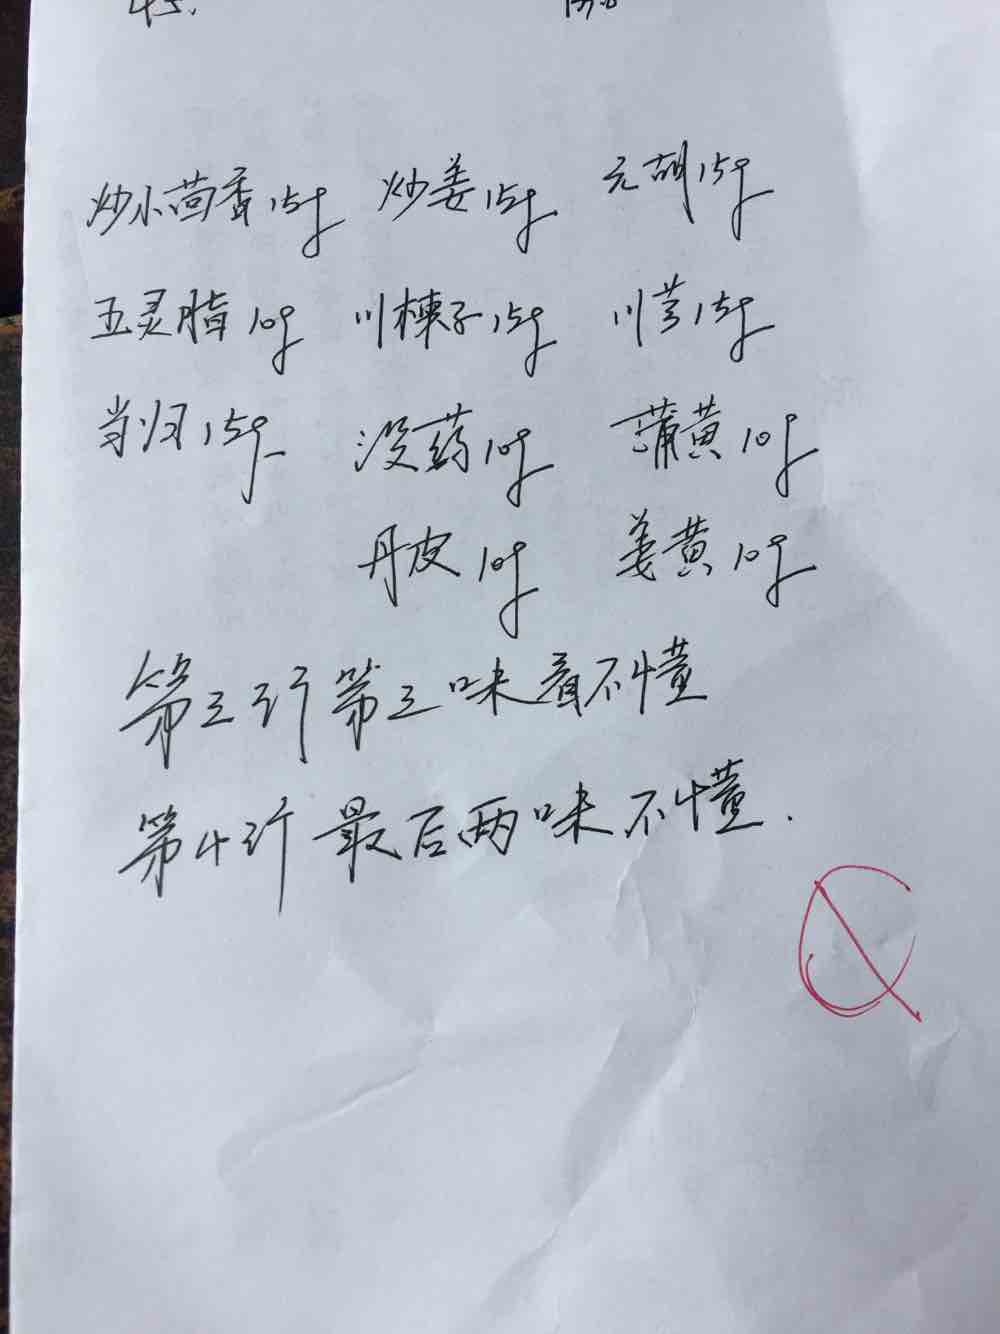 炒小茴香15g 炒姜15g 元胡15g
五灵脂10g 川楝子15g 川芎15g
当归15g 没药10g 蒲黄10g
丹皮10g 姜黄10g
第三行第三味看不懂
第4行最后两味不懂.